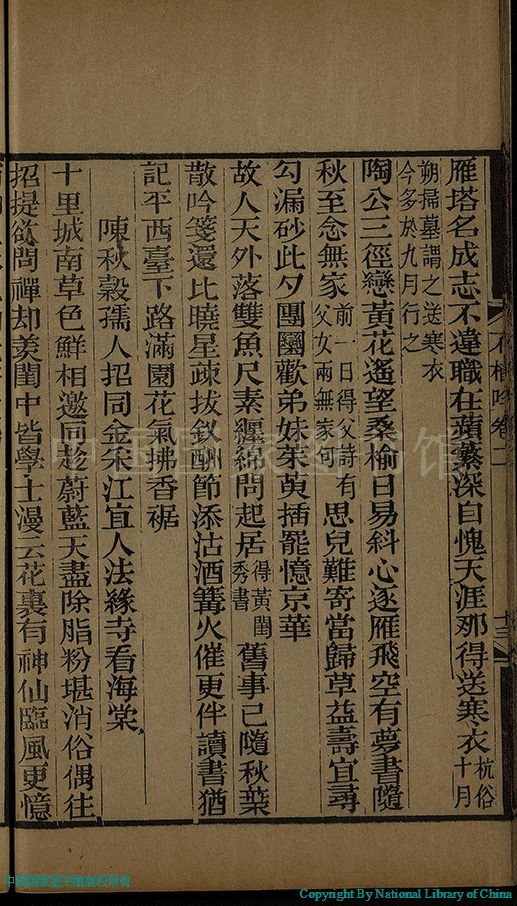 雁塔名成志不違職在蘋蘩深自愧天涯那得送寒衣杭俗十月
朔掃墓謂之送寒衣今多於九月行之
陶公三徑戀黃花遙望桑榆日易斜心逐雁飛空有夢書隨
秋至念無家前一日得父詩有父女兩無家句思兒難寄當歸草益壽宜尋
勾漏砂此夕團圞歡弟妹茱萸插罷憶京華
故人天外落雙魚尺素纏綿問起居得黃閨秀書舊事已隨秋葉
散吟箋還比曉星疎拔釵酬節添沽酒篝火催更伴讀書猶
記平西臺下路滿園花氣拂香裾
陳秋穀孺人招同金采江宜人法緣寺看海棠
十里城南草色鮮相邀同趁蔚藍天盡除脂粉堪消俗偶往
招提欲問禪却羨閨中皆學士漫云花裏有神仙臨風更憶
不櫛吟卷二
十三
中国国家图书馆
中国国家图书馆版权所有
Copyright By National Library of China